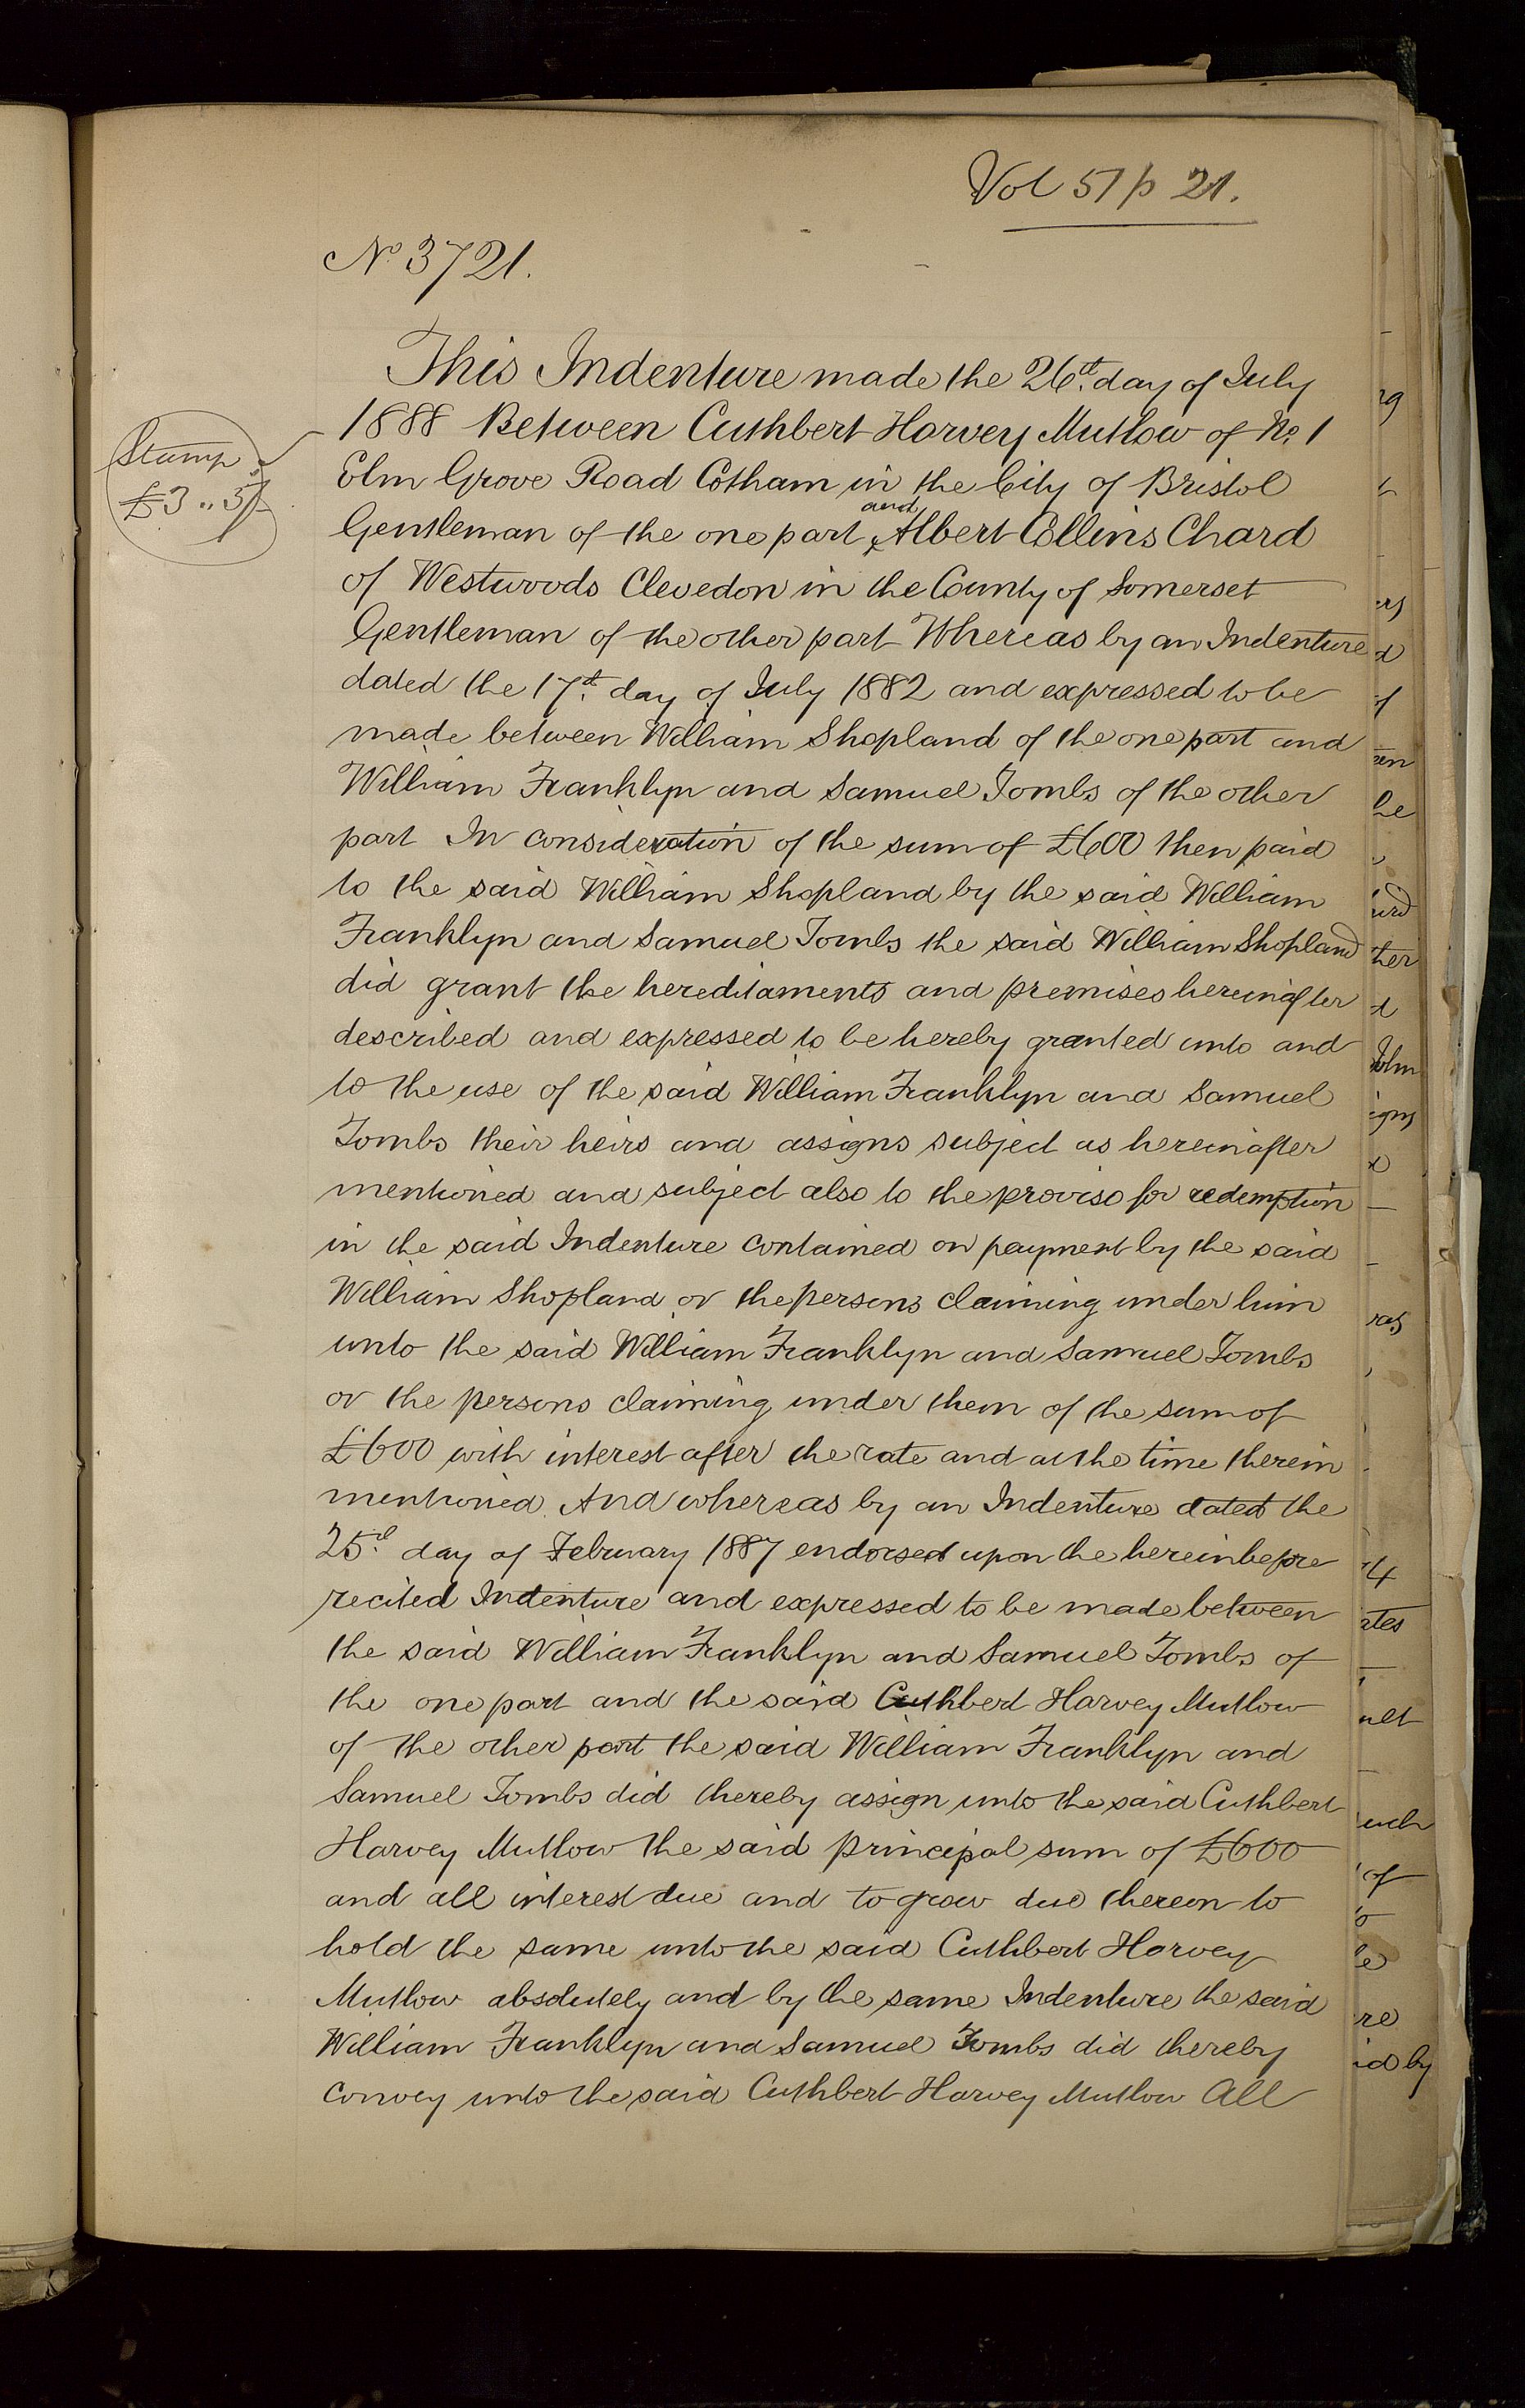 Vol 51 p 21.
No 3721.
This Indenture made the 26th day of July
1888 Between Cuthbert Harvey Mutlow of No 1
Stamp
£3 " 5/-
Elm Grove Road Cotham in the City of Bristol
Gentleman of the one part and Albert Collins Chard
of Westwoods Clevedon in the County of Somerset
Gentleman of the other part Whereas by an Indenture
dated the 17th day of July 1882 and expressed to be
made between William Shopland of the one part and
William Franklyn and Samuel Tombs of the other
part In consideration of the sum of £600 then paid
to the said William Shopland by the said William
Franklyn and Samuel Tombs the said William Shopland
did grant the hereditaments and premises hereinafter
described and expressed to be hereby granted unto and
to the use of the said William Franklyn and Samuel
Tombs their heirs and assigns subject as hereinafter
mentioned and subject also to the proviso for redemption
in the said Indenture contained on payment by the said
William Shopland or the persons claiming under him
unto the said William Franklyn and Samuel Tombs
or the persons claiming under them of the sum of
£600 with interest after the rate and at the time therein
mentioned And whereas by an Indenture dated the
25th day of February 1887 endorsed upon the hereinbefore
recited Indenture and expressed to be made between
the said William Franklyn and Samuel Tombs of
the one part and the said Cuthbert Harvey Mutlow
of the other part the said William Franklyn and
Samuel Tombs did thereby assign unto the said Cuthbert
Harvey Mutlow the said principal sum of £600
and all interest due and to grow due thereon to
hold the same unto the said Cuthbert Harvey
Mutlow absolutely and by the same Indenture the said
William Franklyn and Samuel Tombs did thereby
convey unto the said Cuthbert Harvey Mutlow All